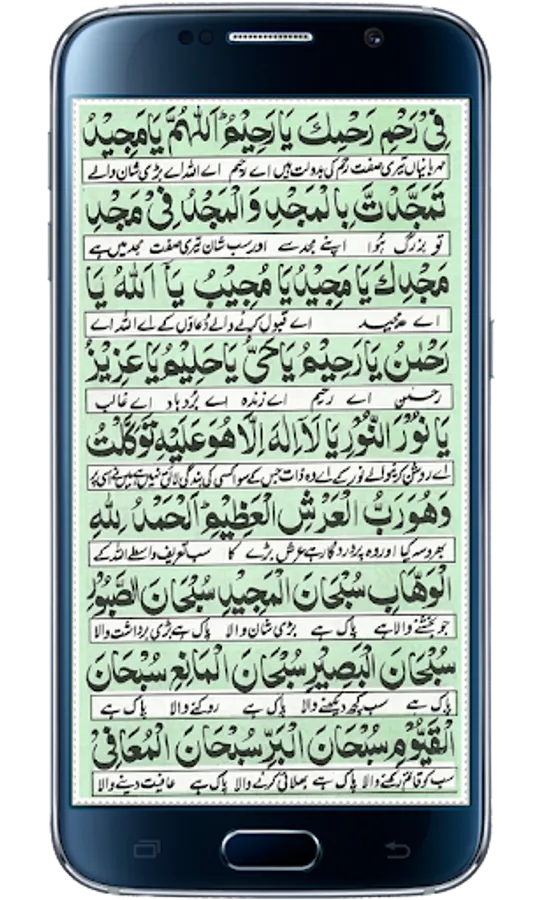 فِىْ رَحْمِ رَحْمِكَ يَا رَحِيْمُ ط اَللّٰهُمَّ يَا مَجِيْدُ
مہربانیاں تیری صفت رحم کی بدولت ہیں اے رحیم اے اللہ اے بڑی شان والے
تَمَجَّدْتَّ بِالْمَجْدِ وَالْمَجْدُ فِىْ مَجْدِ
تو بزرگ ہُوا اپنے مجد سے اور سب شان تیری صفت مجد میں ہے
مَجْدِكَ يَا مَجِيْدُ يَا مُجِيْبُ يَآ اَللّٰهُ يَا
اے مجید اے قبول کرنے والے دُعاؤں کے اے اللہ اے
رَحْمٰنُ يَا رَحِيْمُ يَا حَىُّ يَا حَلِيْمُ يَا عَزِيْزُ
رحمٰن اے رحیم اے زندہ اے بُردباد اے غالب
يَا نُوْرَ النُّوْرِ يَا لَآ اِلٰهَ اِلَّا هُوَ عَلَيْهِ تَوَكَّلْتُ
اے روشن کرنیوالے نور کے اے وہ ذات جس کے سوا کسی کی بندگی لائق نہیں ہے میں نے اسی پر
وَهُوَ رَبُّ الْعَرْشِ الْعَظِيْمِ ط اَلْحَمْدُ لِلّٰهِ
بھروسہ کیا اور وہ پروردگار ہے عرش بڑے کا سب تعریف واسطے اللہ کے
الْوَهَّابِ سُبْحَانَ الْمَجِيْدِ سُبْحَانَ الصَّبُوْرِ
جو بخشنے والا ہے پاک ہے بڑی شان والا پاک ہے بڑی برداشت والا
سُبْحَانَ الْبَصِيْرِ سُبْحَانَ الْمَانِعِ سُبْحَانَ
پاک ہے سب کچھ دیکھنے والا پاک ہے روکنے والا پاک ہے
الْقَيُّوْمِ سُبْحَانَ الْبَرِّ سُبْحَانَ الْمُعَافِىْ
سب کو قائم رکھنے والا پاک ہے بھلائی کرنے والا پاک ہے عافیت دینے والا